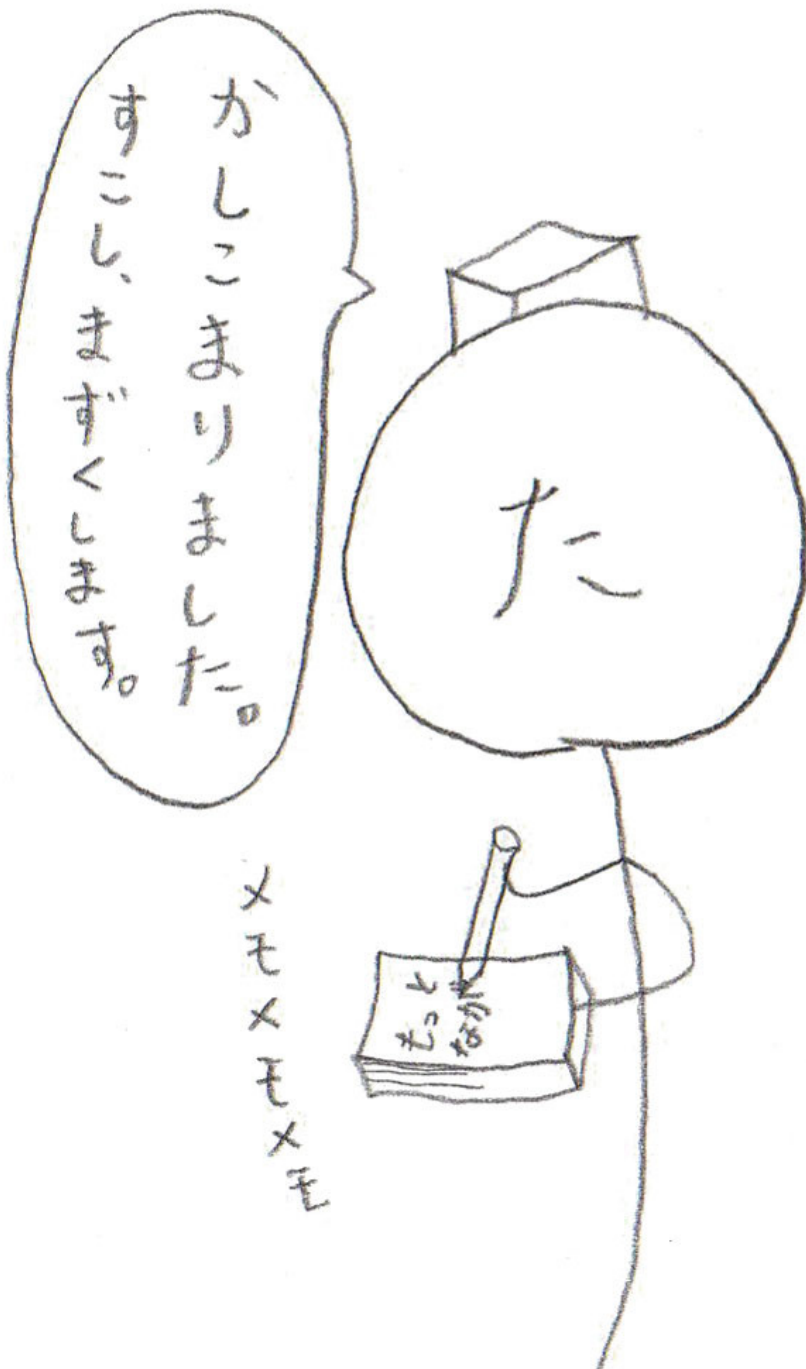 かしこまりました。
すこし、まずくします。
た
メモメモメモ
もっと
なが